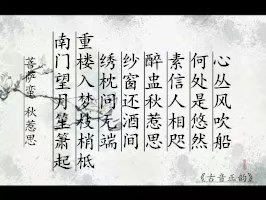 菩萨蛮 秋惹思
南门望月笙箫起
重楼入梦枝梢柢
绣枕问无端
纱窗还酒间
醉盅秋惹思
素信人相咫
何处是悠然
心丛风吹船
《古音正韵》